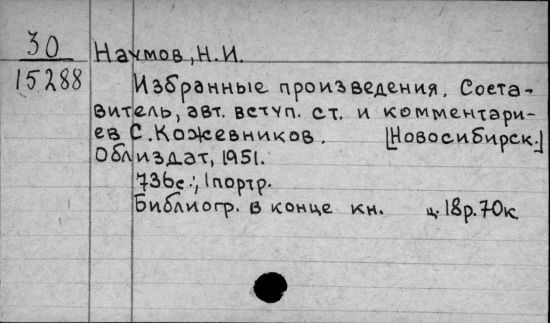 30
15288
Наумов, Н.И.
Избранные произведения. Соста-
витель, авт. вступ. ст. и комментари-
ев С. Кожевников. [Новосибирск.]
Облиздат, 1951.
736с.; 1портр.
Библиогр. в конце кн. ц. 18р.70к.